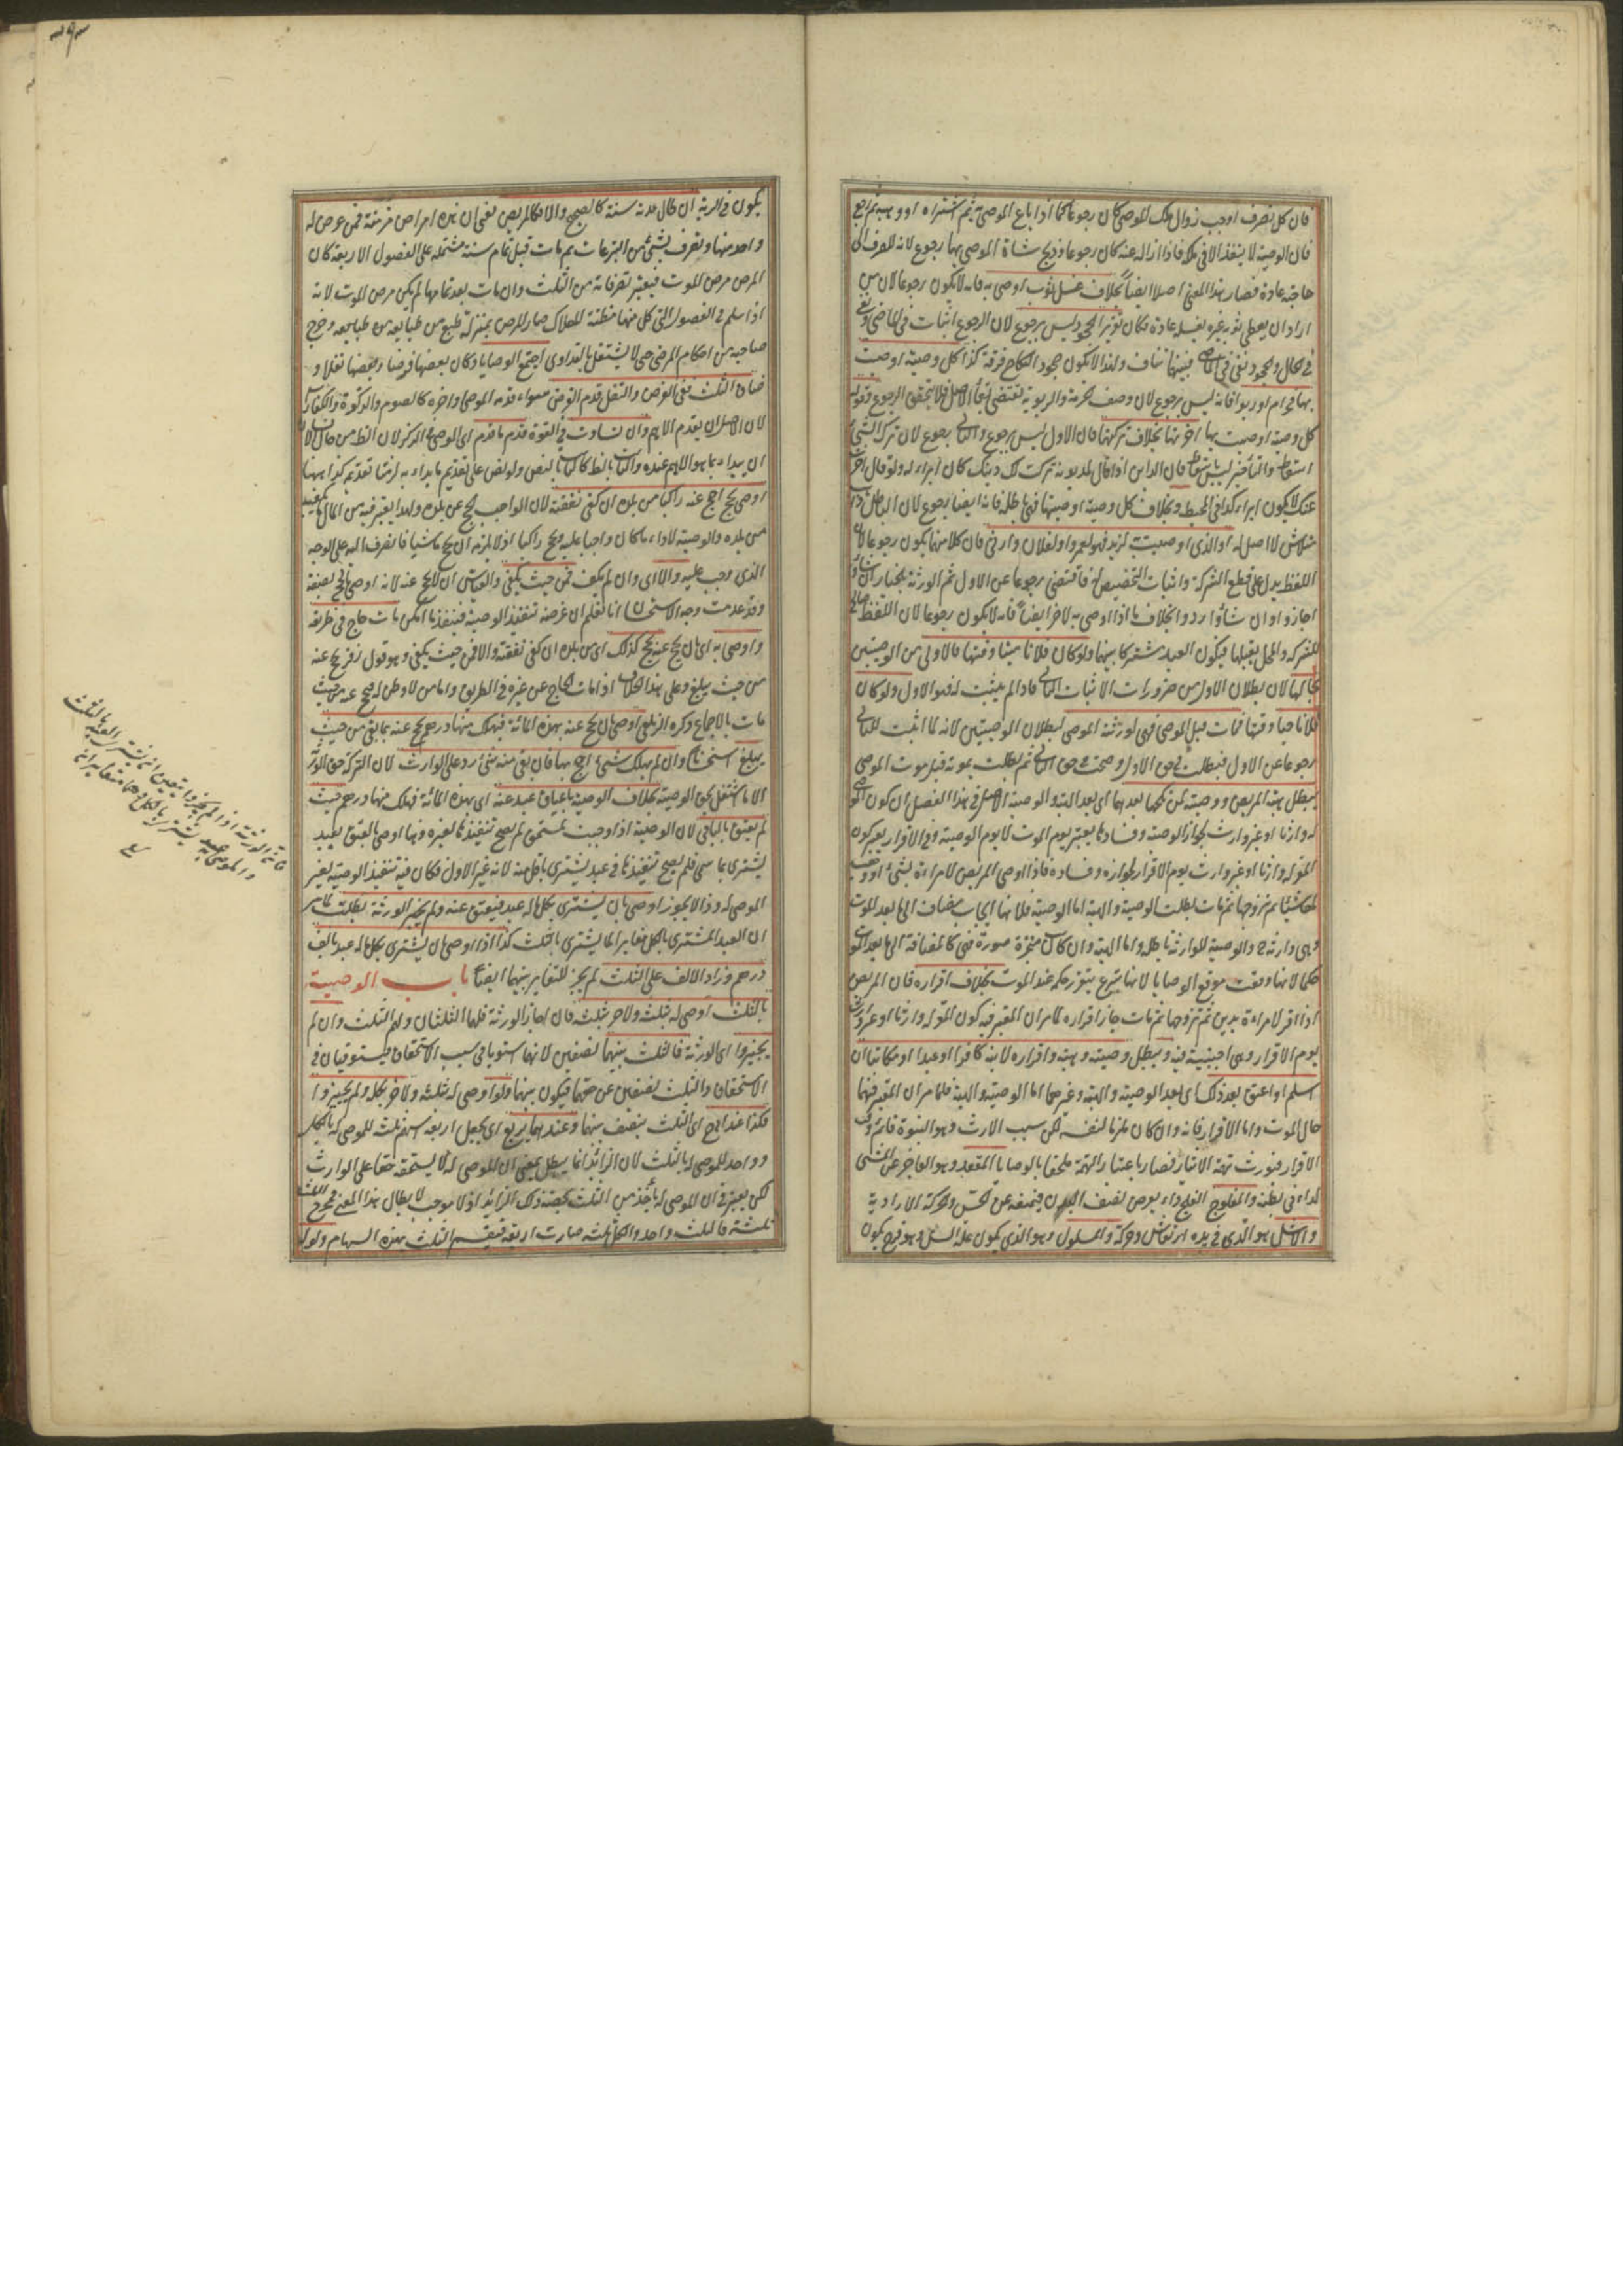 فان كل تصرف اوجب زوال ملك الموصى كان رجوعا كما اذا باع الموصى به ثم اشتراه او وهبه ثم رجع
فان الوصية لا ينفذ الا في ملكه فاذا ازاله عنه كان رجوعا وذبح شاة الموصى بها رجوع لانه للصرف الى
حاجته عادة فصار هذا المعنى اصلا ايضا بخلاف غسل ثوب اوصى به فانه لا يكون رجوعا لان من
اراد ان يعطى ثوبه غيره يغسله عادة فكان تقريرا لجحود ليس برجوع لان الرجوع اثبات في الماضي ونفي
في الحال والجحود نفي في الماضي فبينهما تناف ولهذا لا يكون جحود النكاح فرقة كذا كل وصية اوصيت
بها فحرام او ربوا فانه ليس برجوع لان وصف الحرمة والربوية يقتضي بقاء الاصل فلا يتحقق الرجوع وقوله
كل وصية اوصيت بها اخرتها بخلاف تركتها فان الاول ليس برجوع والثاني رجوع لان ترك الشئ
اسقاط والتأخير ليس باسقاط فان الداين اذا قال لمديونه تركت لك دينك كان ابراء له ولو قال اخرت
عنك لا يكون ابراء كذا في المحيط وبخلاف كل وصية اوصيتها فهي باطلة فانه ايضا رجوع لان الباطل ذاهب
متلاش لا اصل له او الذي اوصيت لزيد فهو لعمرو او لفلان وارثي فان كلا منها يكون رجوعا لان
اللفظ يدل على قطع الشركة واثبات التخصيص له فاقتضى رجوعا عن الاول ثم الورثة بالخيار ان شاؤا
اجازوا وان شاؤا ردوا بخلاف ما اذا اوصى به لاخر ايضا فانه لا يكون رجوعا لان اللفظ صالح
للشركة والمحل يقبلها فيكون العبد مشتركا بينهما ولو كان فلانا ميتا وقتها فالاولى من الوصيتين
بحالها لان بطلان الاول من ضرورات الاثبات للثاني فاذا لم يثبت لم يبق الاول ولو كان
فلانا حيا وقتها فمات قبل الموصى فهي لورثة الموصى لبطلان الوصيتين لانه لما اثبت للثاني
رجوعا عن الاول فبطلت في حق الاول وصحت في حق الثاني ثم بطلت بموته قبل موت الموصى
يبطل هبة المريض ووصيته لمن نكحها بعدها اى بعد الهبة والوصية الاصل في هذا الفصل ان كون الموصى
له وارثا او غير وارث لجواز الوصية وفسادها يعتبر يوم الموت لا يوم الوصية وفي الاقرار يعتبر كون
المقر له وارثا او غير وارث يوم الاقرار لجوازه وفساده فاذا اوصى المريض لامراة بشئ او وهب
لها شيئا ثم تزوجها ثم مات بطلت الوصية والهبة اما الوصية فلانها ايجاب مضاف الى ما بعد الموت
وهي وارثة ح والوصية للوارث باطلة واما الهبة وان كانت منجزة صورة فهي كالمضافة الى ما بعد الموت
حكما لانها وقعت موقع الوصايا لانها تبرع يتقرر حكمه عند الموت بخلاف اقراره فان المريض
اذا اقر لامراة بدين ثم تزوجها ثم مات جاز اقراره لما مر ان المعتبر فيه كون المقر له وارثا او غير وارث
يوم الاقرار وهي اجنبية فيه ويبطل وصيته وهبته واقراره لابنه كافرا او عبدا او مكاتبا ان
اسلم او اعتق بعد ذلك اى بعد الوصية والهبة وغيرهما اما الوصية والهبة فلما مر ان المعتبر فيهما
حال الموت واما الاقرار فانه وان كان ملزما لنفسه لكن سبب الارث وهو البنوة قائم وقت
الاقرار فيورث تهمة الايثار فصار باعتبار التهمة ملحقا بالوصايا المقعد وهو العاجز عن المشى
لداء في بطنه والمفلوج الفلج داء يعرض لنصف البدن فيمنعه عن الحس والحركة الارادية
والاشل هو الذي في يده ارتعاش وحركة والمسلول وهو الذي يكون علة السل وهو قرح يكون
يكون في الرية ان طال مدته سنة كالصحيح والا فكالمريض يعني ان هذه امراض مزمنة فمن عرض له
واحد منها وتصرف بشئ من التبرعات ثم مات قبل تمام سنة مشتملة على الفصول الاربعة كان
المرض مرض الموت فيعتبر تصرفاته من الثلث وان مات بعد تمامها لم يكن مرض الموت لانه
اذا سلم في الفصول التي كل منها مظنة للهلاك صار المرض بمنزلة طبع من طبايعه وخرج
صاحبه من احكام المرض حتى لا يشتغل بالتداوى اجتمع الوصايا وكان بعضها فرضا وبعضها نفلا و
ضاق الثلث ففي الفرض والنفل قدم الفرض سواء قدمه الموصى او اخره كالصوم والزكوة والكفارات
لان الاصل ان يقدم الاهم وان تساوت في القوة قدم ما قدم اى الموصى في الذكر لان الظاهر من حال الانسان
ان يبداء بما هو الاهم عنده والثابت بالظاهر كالثابت بالنص ولو نص على تقديم ما بداء به لزمنا تقديمه كذا ههنا
اوصى بحج احج عنه راكبا من بلده ان كفى نفقته لان الواجب الحج عن بلده ولهذا يعتبر فيه من المال ما يكفيه
من بلده والوصية لاداء ما كان واجبا عليه ويحج راكبا اذ لا يلزمه ان يحج ماشيا فانصرف اليه على الوجه
الذي وجب عليه والا اى وان لم يكف فمن حيث يكفي والقياس ان لا يحج عنه لانه اوصى بالحج بصفة
وقد عدمت وجه الاستحسان انا نعلم ان غرضه تنفيذ الوصية فينفذ ما امكن مات حاج في طريقه
واوصى به اى بان يحج عنه يحج كذلك اى من بلده ان كفى نفقته والا فمن حيث يكفي وهو قول زفر يحج عنه
من حيث يبلغ وعلى هذا الخلاف اذا مات الحاج عن غيره في الطريق واما من لا وطن له فيحج عنه من حيث
مات بالاجماع ذكره الزيلعي اوصى بان يحج عنه بهذه المائة فهلك منها درهم يحج عنه بما بقى من حيث
يبلغ استحسانا وان لم يهلك شئ احج بها فان بقى منه شئ رد على الوارث لان التركة حق الورثة
الا ما اشتغل بحق الوصية بخلاف الوصية باعتاق عبد عنه اى بهذه المائة فهلك منها درهم حيث
لم يعتق بالباقي لان الوصية اذا وجبت لمستحق لم يصح تنفيذها لغيره وهنا اوصى بالعتق لعبد
يشترى بما سمى فلم يصح تنفيذها في عبد يشترى باقل منه لانه غير الاول فكان فيه تنفيذ الوصية لغير
الموصى له وذا لا يجوز اوصى بان يشترى بكل ماله عبد فيعتق عنه ولم يجز الورثة بطلت لما مر
ان العبد المشترى بالكل مغاير لما يشترى بالثلث كذا اذا اوصى بان يشترى بكل ماله عبد بالف
درهم وزاد الالف على الثلث لم يجز للتغاير بينهما ايضا باب الوصية
بالثلث اوصى له بثلثه ولاخر بثلثه فان اجاز الورثة فلهما الثلثان ولهم الثلث وان لم
يجيزوا اى الورثة فالثلث بينهما نصفين لانهما استويا في سبب الاستحقاق فيستويان في
الاستحقاق والثلث بنصفين عن حقهما فيكون بينهما ولو اوصى له بثلثه ولاخر بكله ولم يجيزوا
فكذا عند ابى ح اى الثلث ينصف بينهما وعندهما يربع اى يجعل اربعة اسهم ثلثة للموصى له بالكل
وواحد للموصى له بالثلث لان الزائد انما يبطل بمعنى ان الموصى له لا يستحقه حقا على الوارث
لكن يعتبر في ان الموصى له يأخذ من الثلث بحصة ذلك الزايد اذ لا موجب لابطال هذا المعنى فمخرج الثلث
ثلثة فالثلث واحد والكل ثلثة صارت اربعة فيقسم الثلث بهذه السهام ولو له
فان الورثة اذا لم يجيزوا تعين انه يشترى العبد بالثلث
والموصى به عبد يشترى بالكل وهما متغايران